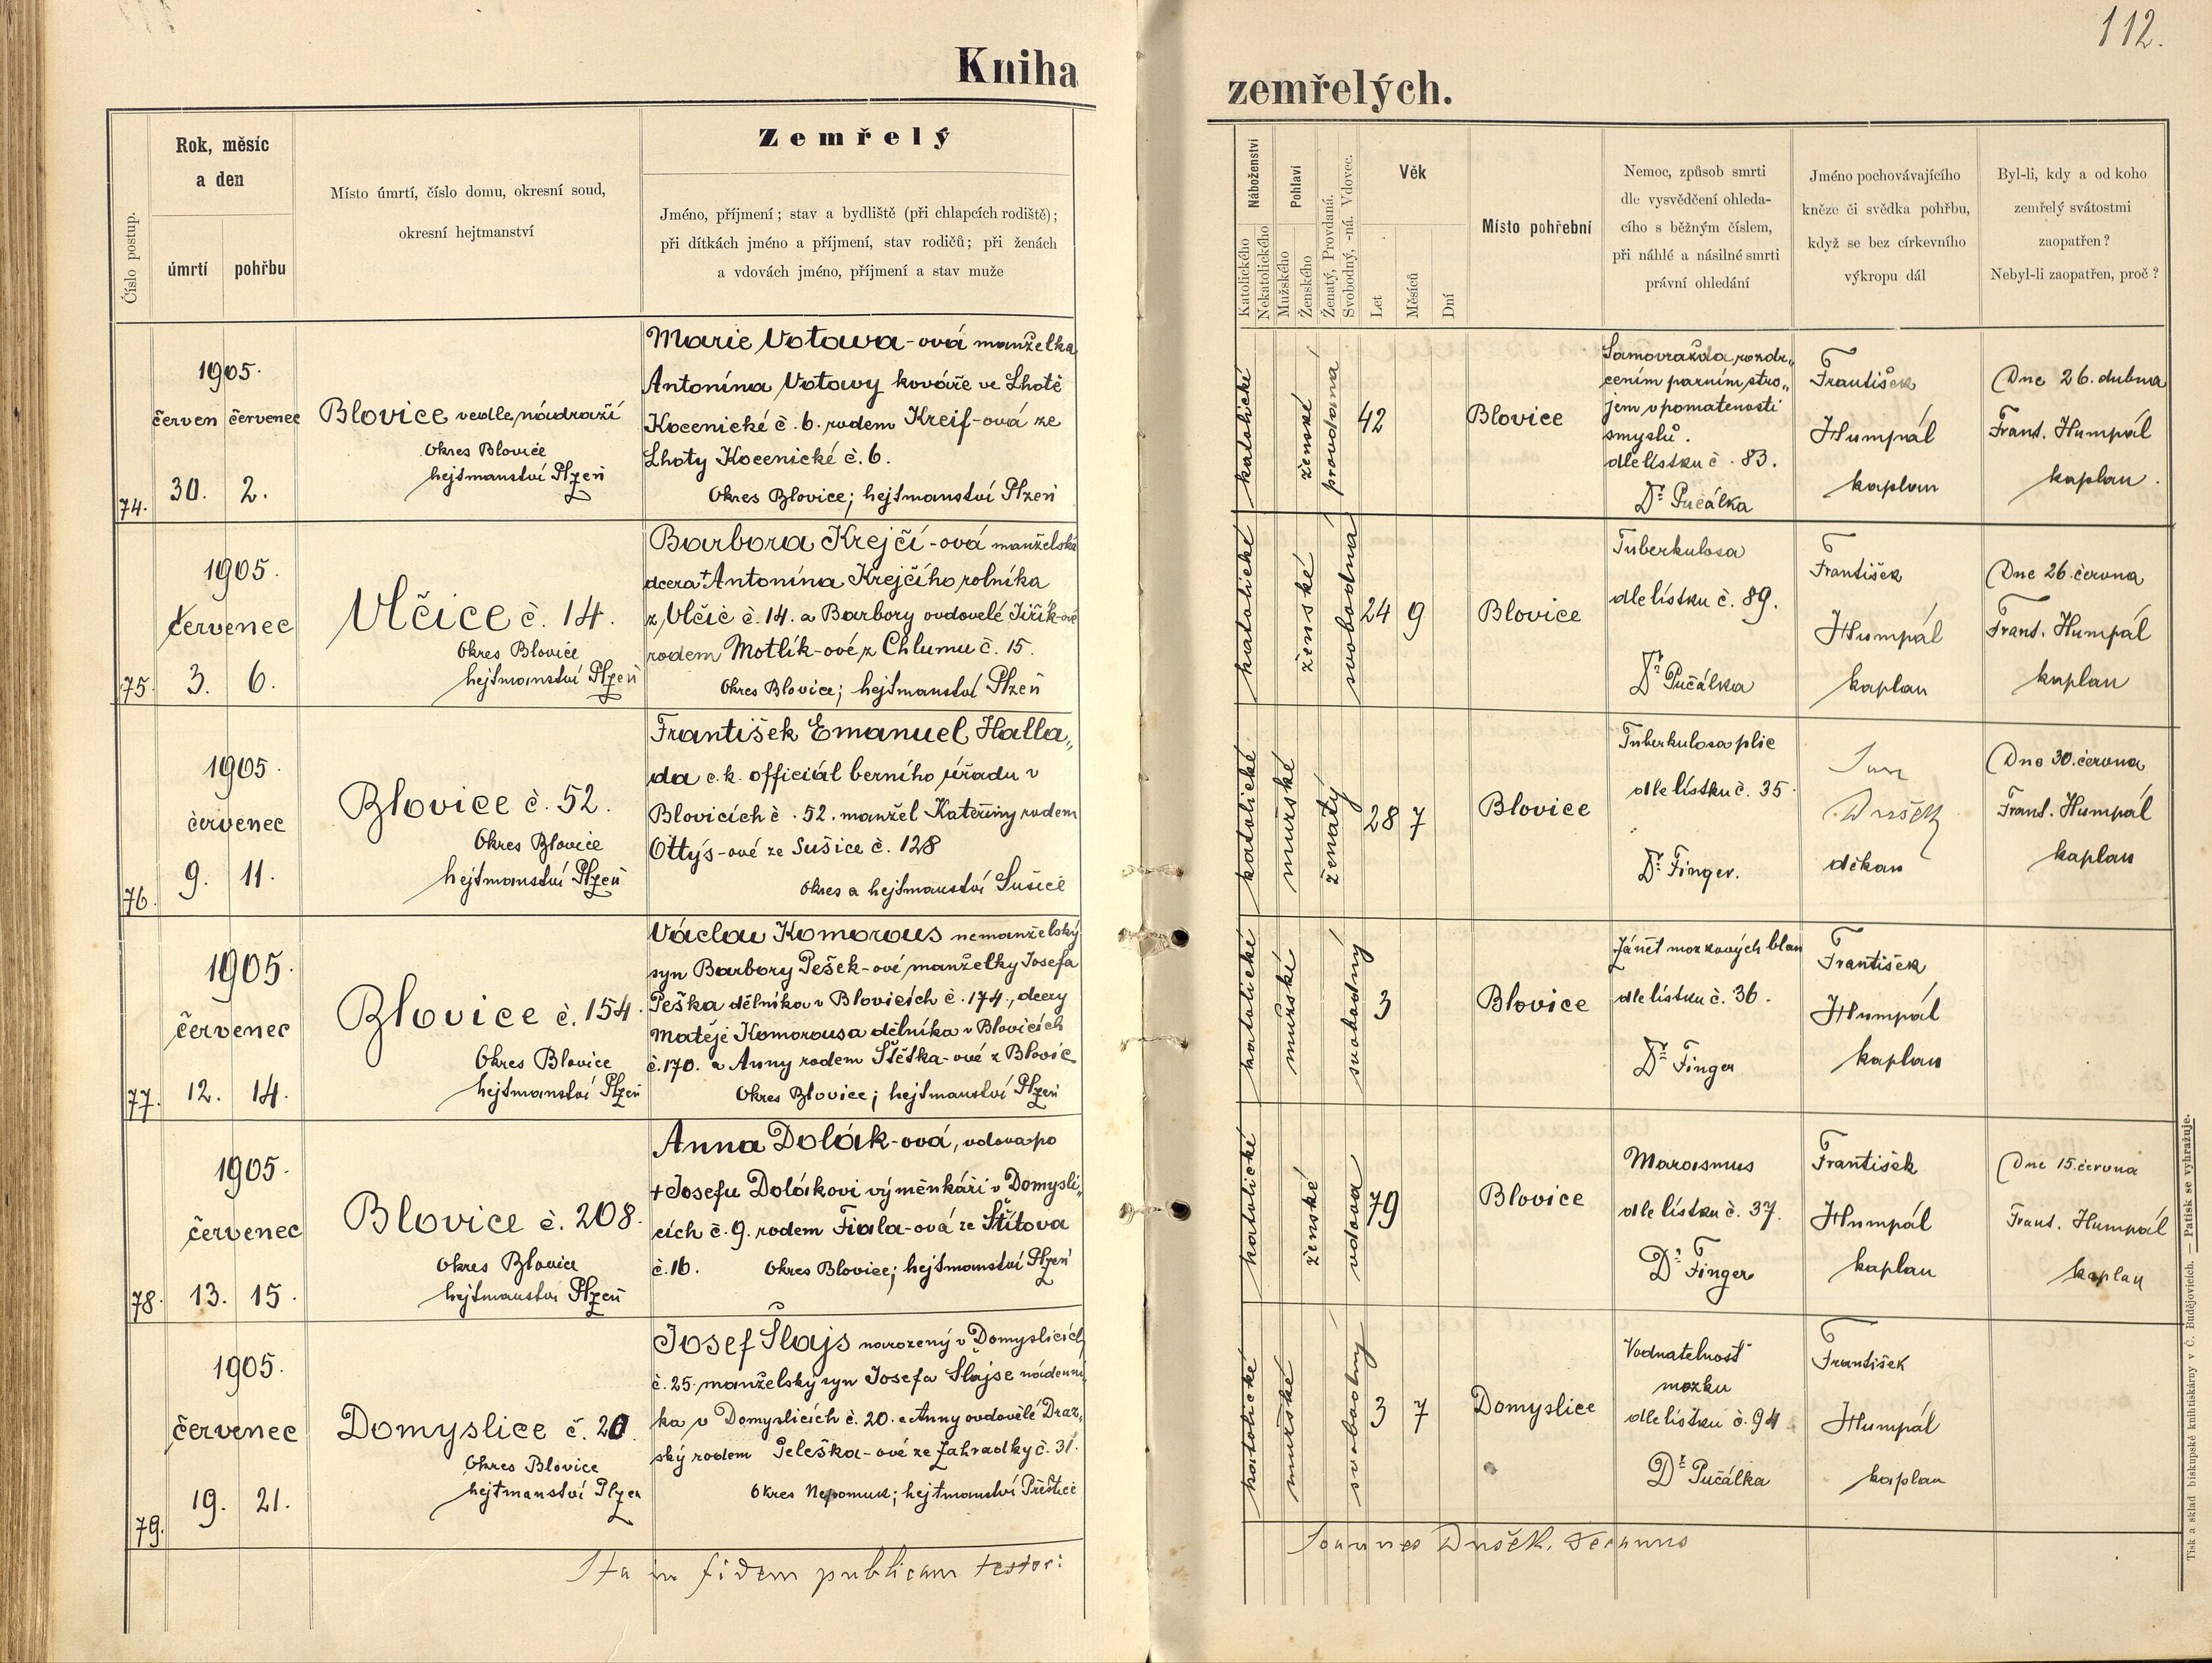 112.
Kniha
zemřelých.
Číslo postup.
Rok, měsíc
a den
úmrtí
pohřbu
Místo úmrtí, číslo domu, okresní soud,
okresní hejtmanství
Zemřelý
Jméno, příjmení; stav a bydliště (při chlapcích rodiště);
při dítkách jméno a příjmení, stav rodičů; při ženách
a vdovách jméno, příjmení a stav muže
Náboženství
Katolického
Nekatolického
Pohlaví
Mužského
Ženského
Ženatý, Provdaná.
Svobodný, -ná. Vdovec.
Věk
Let
Měsíců
Dní
Místo pohřební
Nemoc, způsob smrti
dle vysvědčení ohleda-
cího s běžným číslem,
při náhlé a násilné smrti
právní ohledání
Jméno pochovávajícího
kněze či svědka pohřbu,
když se bez církevního
výkropu dál
Byl-li, kdy a od koho
zemřelý svátostmi
zaopatřen?
Nebyl-li zaopatřen, proč?
74.
1905.
červen červenec
30. 2.
Blovice vedle nádraží
Okres Blovice
hejtmanství Plzeň
Marie Votawa-ová manželka
Antonína Votawy kováře ve Lhotě
Kocenické č. 6. rodem Kreif-ová ze
Lhoty Kocenické č. 6.
Okres Blovice; hejtmanství Plzeň
katolické
ženské
provdaná
42
Blovice
Samovražda rozdr„
cením parním stro„
jem v pomatenosti
smyslů.
dle lístku č. 83.
Dr. Pučálka
František
Humpál
kaplan
Dne 26. dubna
Frant. Humpál
kaplan.
75.
1905.
červenec
3. 6.
Vlčice č. 14.
Okres Blovice
hejtmanství Plzeň
Barbora Krejčí-ová manželská
dcera † Antonína Krejčího rolníka
z Vlčic č. 14. a Barbory ovdovělé Jiřík-ové
rodem Motlík-ové z Chlumu č. 15.
Okres Blovice; hejtmanství Plzeň
katolické
ženské
svobodná
24 9
Blovice
Tuberkulosa
dle lístku č. 89.
Dr. Pučálka
František
Humpál
kaplan
Dne 26. června
Frant. Humpál
kaplan
76.
1905.
červenec
9. 11.
Blovice č. 52.
Okres Blovice
hejtmanství Plzeň
František Emanuel Halla„
da c. k. officiál berního úřadu v
Blovicích č. 52. manžel Kateřiny rodem
Ottýs-ové ze Sušice č. 128
Okres a hejtmanství Sušice
katolické
mužské
ženatý
28 7
Blovice
Tuberkulosa plic
dle lístku č. 35.
Dr. Finger.
Jan
Dušek
děkan
Dne 30. června
Frant. Humpál
kaplan
77.
1905.
červenec
12. 14.
Blovice č. 154.
Okres Blovice
hejtmanství Plzeň
Václav Komorous nemanželský
syn Barbory Pešek-ové manželky Josefa
Peška dělníka v Blovicích č. 174., dcery
Matěje Komorousa dělníka v Blovicích
č. 170. a Anny rodem Štětka-ové z Blovic
Okres Blovice; hejtmanství Plzeň
katolické
mužské
svobodný
3
Blovice
Zánět mozkových blan
dle lístku č. 36.
Dr. Finger
František
Humpál
kaplan
78.
1905.
červenec
13. 15.
Blovice č. 208.
Okres Blovice
hejtmanství Plzeň
Anna Dolák-ová, vdova po
† Josefu Dolákovi výměnkáři v Domysli„
cích č. 9. rodem Fiala-ová ze Štítova
č. 16. Okres Blovice; hejtmanství Plzeň
katolické
ženské
vdova
79
Blovice
Marasmus
dle lístku č. 37.
Dr. Finger
František
Humpál
kaplan
Dne 15. června
Frant. Humpál
kaplan
79.
1905.
červenec
19. 21.
Domyslice č. 20.
Okres Blovice
hejtmanství Plzeň
Josef Šlajs narozený v Domyslicích
č. 25. manželský syn Josefa Šlajse nádenní„
ka v Domyslicích č. 20. a Anny ovdovělé Draz„
ský rodem Peleška-ové ze Zahradky č. 31.
Okres Nepomuk; hejtmanství Přeštice
katolické
mužské
svobodný
3 7
Domyslice
Vodnatelnost
mozku
dle lístku č. 94
Dr. Pučálka
František
Humpál
kaplan
Ita in fidem publicam testor:
Joannes Dušek, Decanus
Tisk a sklad biskupské knihtiskárny v Č. Budějovicích. — Patisk se vyhražuje.